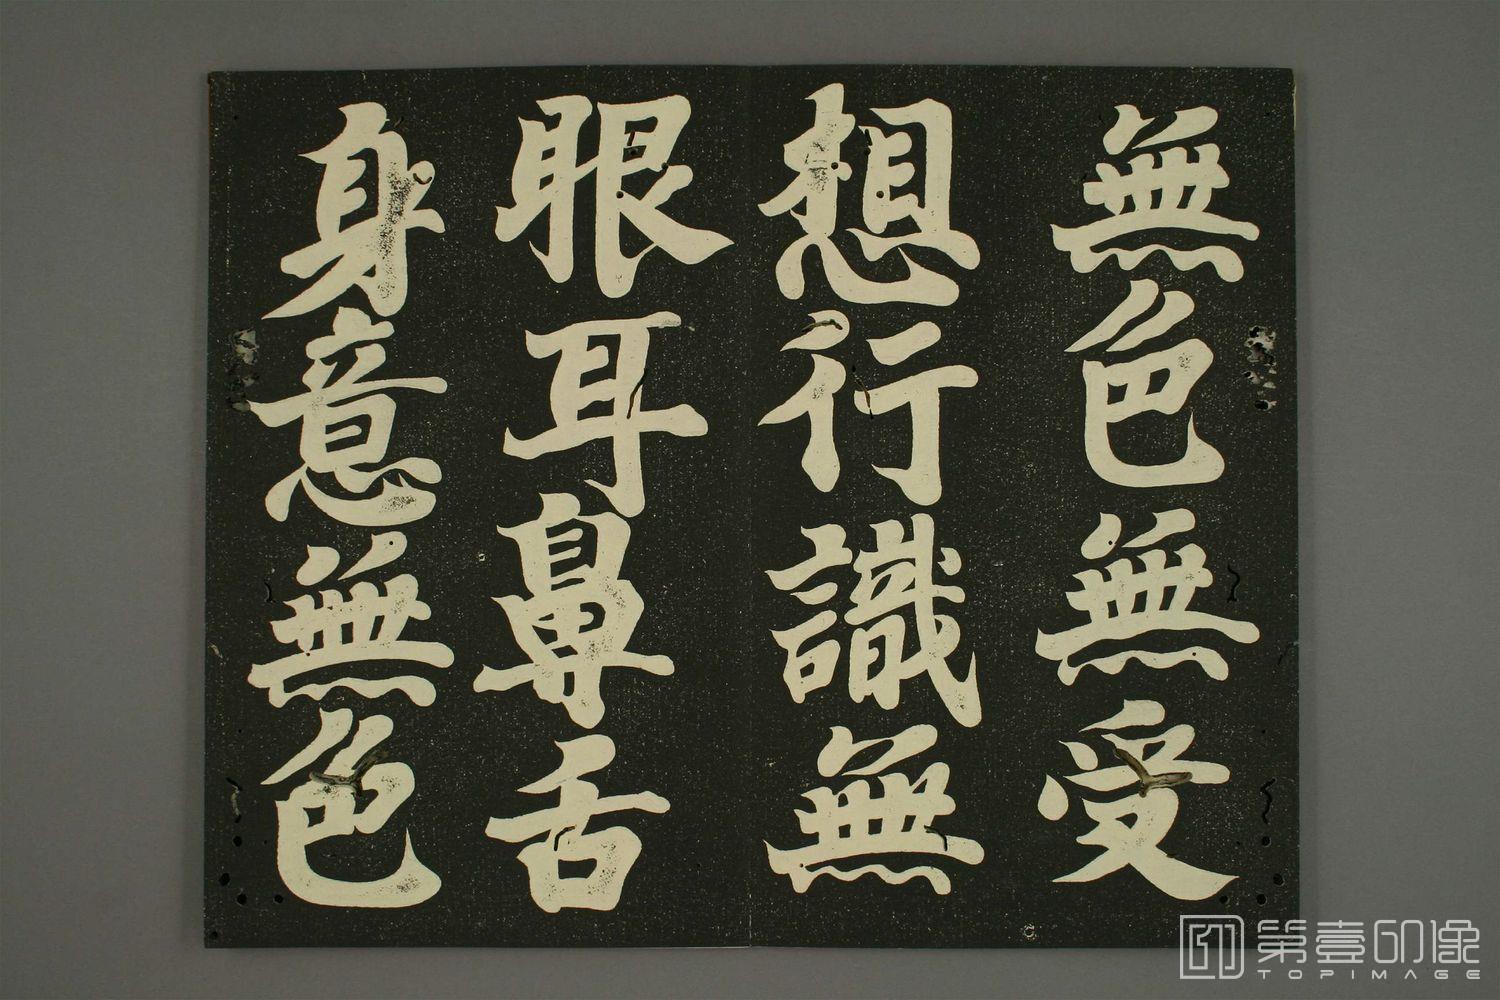 無色無受
想行識無
眼耳鼻舌
身意無色
第壹印像
TOPIMAGE